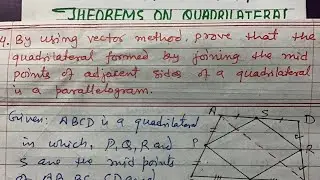 THEOREMS ON QUADRILATERAL
4. By using vector method, prove that the
quadrilateral formed by joining the mid
points of adjacent sides of a quadrilateral
is a parallelogram.
Given: ABCD is a quadrilateral
in which, P, Q, R and
S are the mid points
A S D
P R